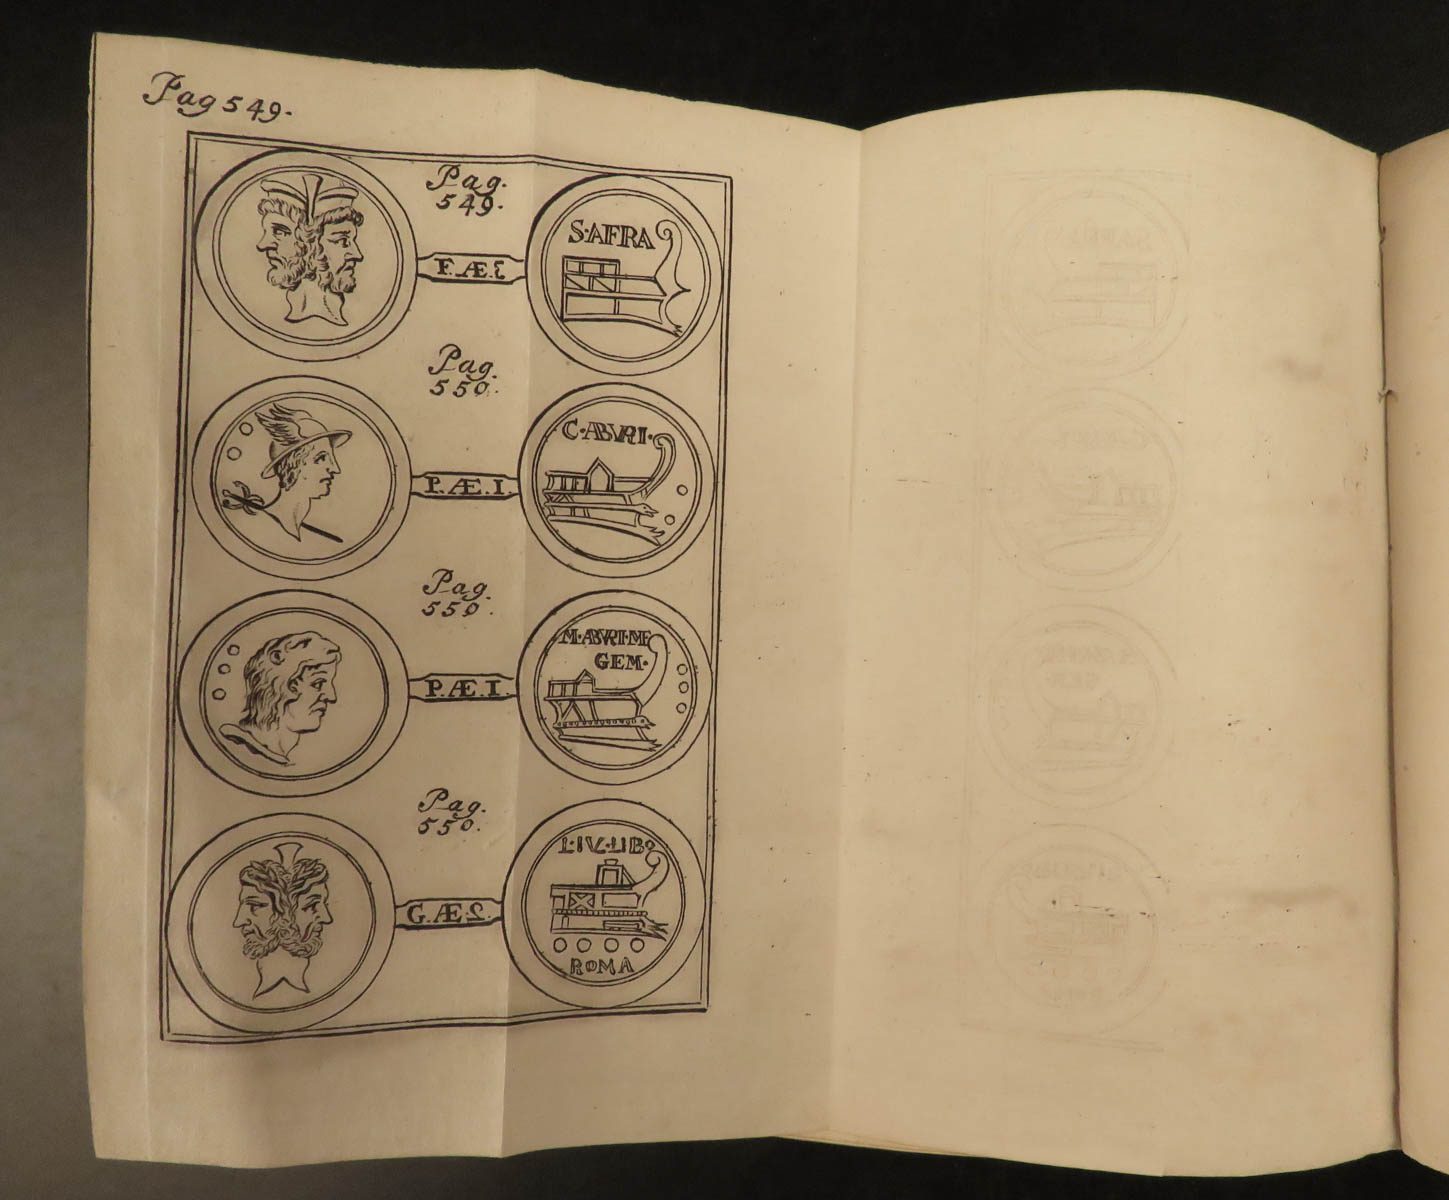 Pag 549.
Pag.
549.
S·AFRA
F. Æ. Ɛ
Pag.
550.
C·ABVRI·
P. Æ. I.
Pag.
550.
M·ABVRI·M·F
GEM·
P. Æ. I.
Pag.
550.
L·IVL·LIBO
G. Æ. 2.
ROMA